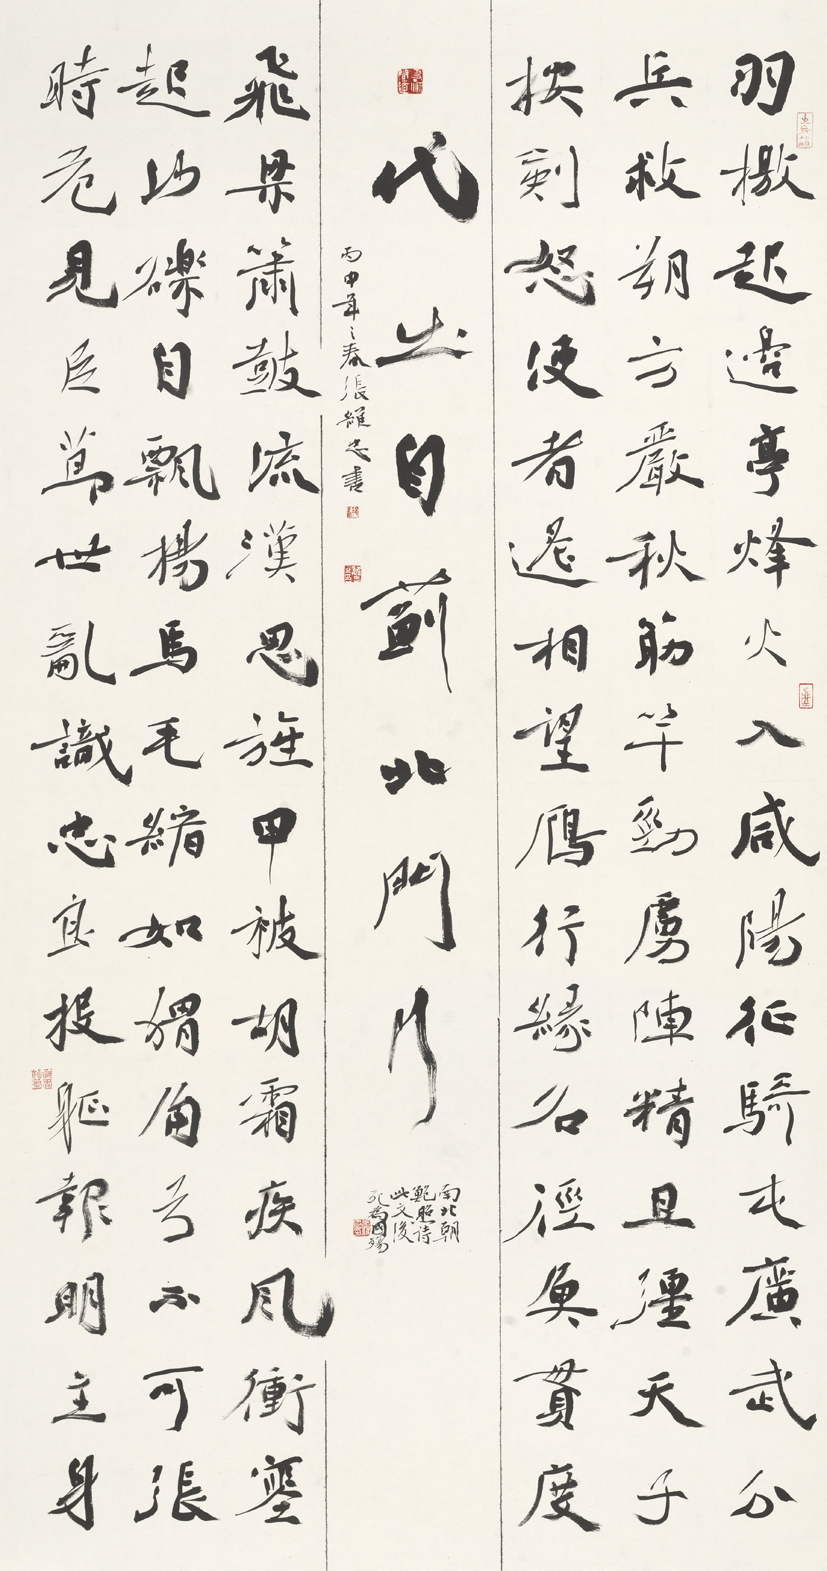 羽檄起邊亭烽火入咸陽征騎屯廣武分
兵救朔方嚴秋筋竿勁虜陣精且彊天子
按劍怒使者遙相望鴈行緣石徑魚貫度
代出自薊北門行
南北朝
鮑照詩
此文後
死為國殤
丙申年之春張維忠書
飛梁簫鼓流漢思旌甲被胡霜疾風衝塞
起沙礫自飄揚馬毛縮如蝟角弓不可張
時危見臣節世亂識忠良投軀報明主身